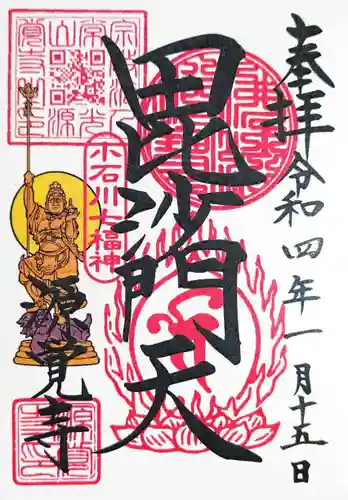 奉拝
令和四年一月十五日
毘沙門天
小石川七福神
源覚寺